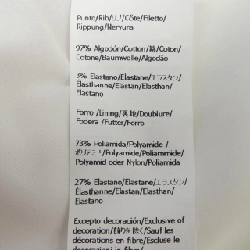 Punto/Rib/リブ/Côte/Filetto/
Rippung/Nervura
97% Algodón/Cotton/綿/Coton/
Cotone/Baumwolle/Algodão
3% Elastano/Elastane/エラスタン/
Élasthanne/Elastan/Elasthan/
Elastano
Forro/Lining/裏地/Doublure/
Fodera/Futter/Forro
73% Poliamida/Polyamide/
ポリアミド/Polyamide/Poliammide/
Polyamid oder Nylon/Poliamida
27% Elastano/Elastane/エラスタン/
Élasthanne/Elastan/Elasthan/
Elastano
Excepto decoración/Exclusive of
decoration/装飾を除く/Sauf les
décorations en fibre/Escluse le
decorazioni in fibra/